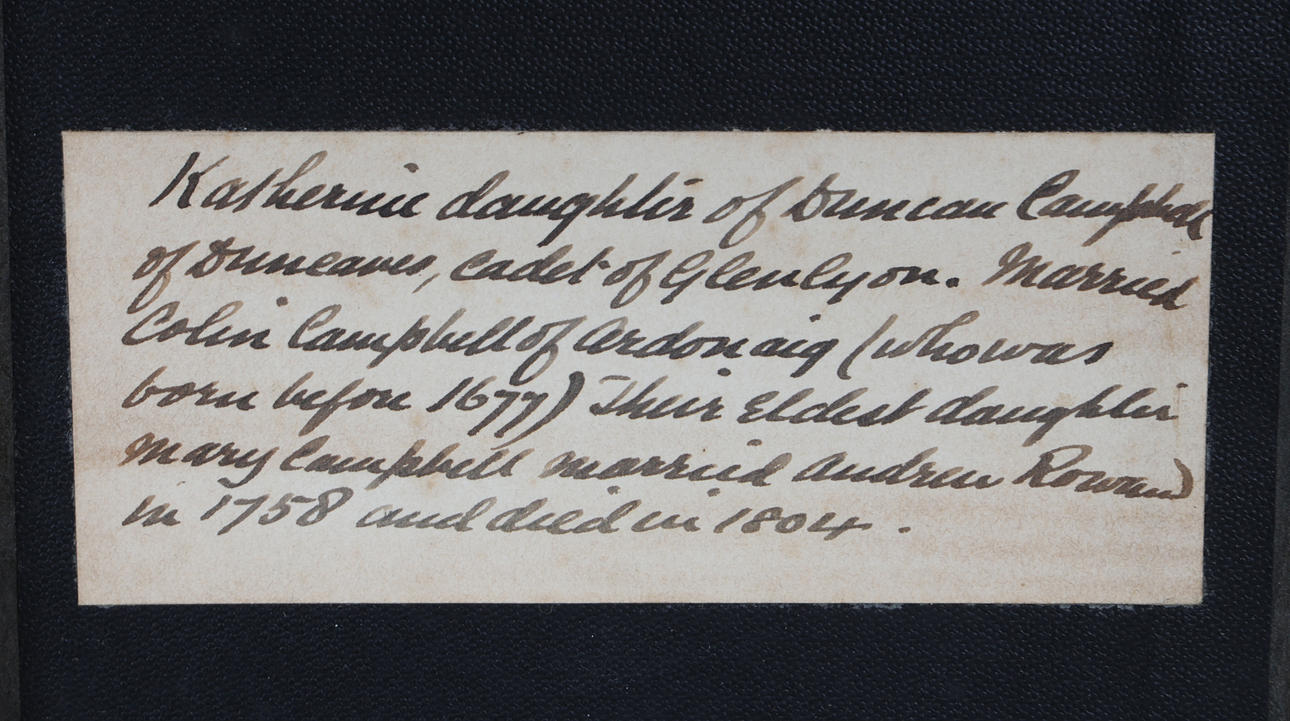 Katherine daughter of Duncan Campbell
of Duneaves, cadet of Glenlyon. Married
Colin Campbell of Ardonaig (who was
born before 1677) Their Eldest daughter
Mary Campbell married Andrew Rowand
in 1758 and died in 1804.